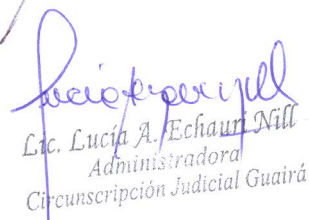 Lic. Lucía A. Echauri Nill
Administradora
Circunscripción Judicial Guairá